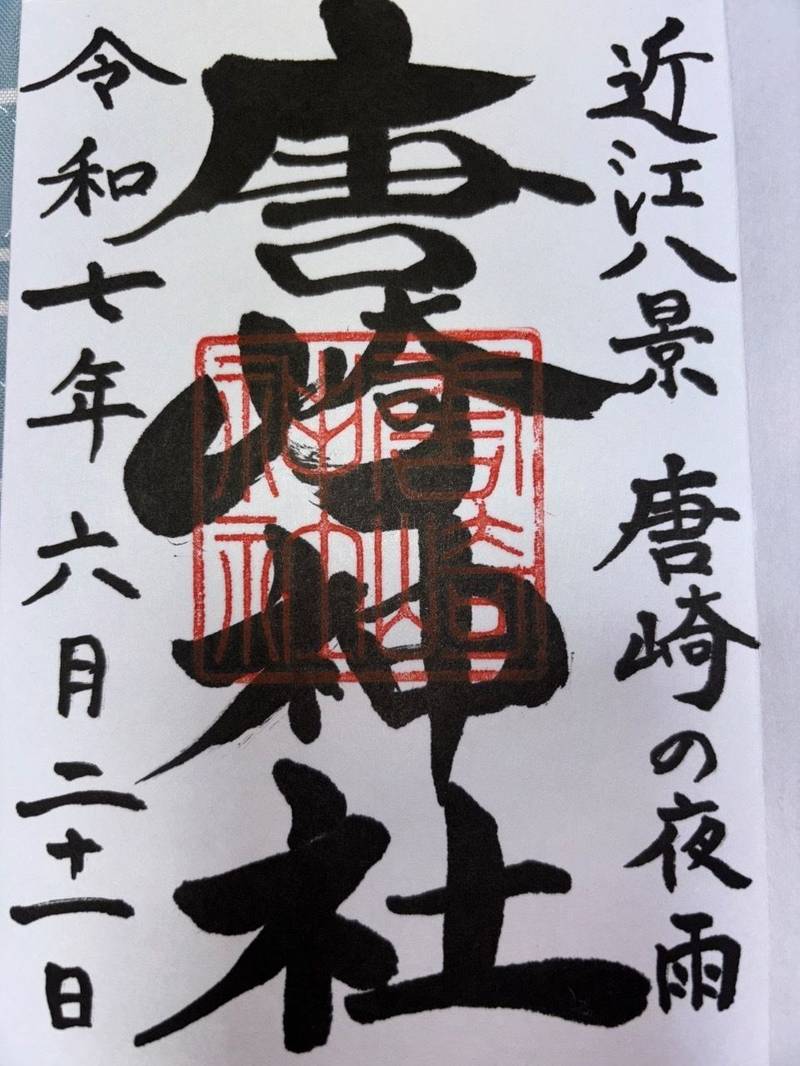 近江八景 唐崎の夜雨
唐崎神社
唐崎神社神
令和七年六月二十一日